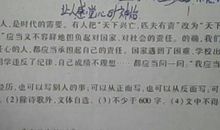 让人感觉心的交给
人,是时代的需要。有人把“天下兴亡,匹夫有责”改为“天下
”应当义不容辞地担负起对国家、对社会的责任。的确,我们
任心的人,都应当承担起自己的责任。国家遇到了困难,学校出
同学违反了纪律,自己成绩不理想……都应当问一问,“我应
经历,也可以写别人的事,可以从正面写,也可以从反面写,可
(2)除诗歌外,文体自选。(3)不少于600字。(4)文中不用